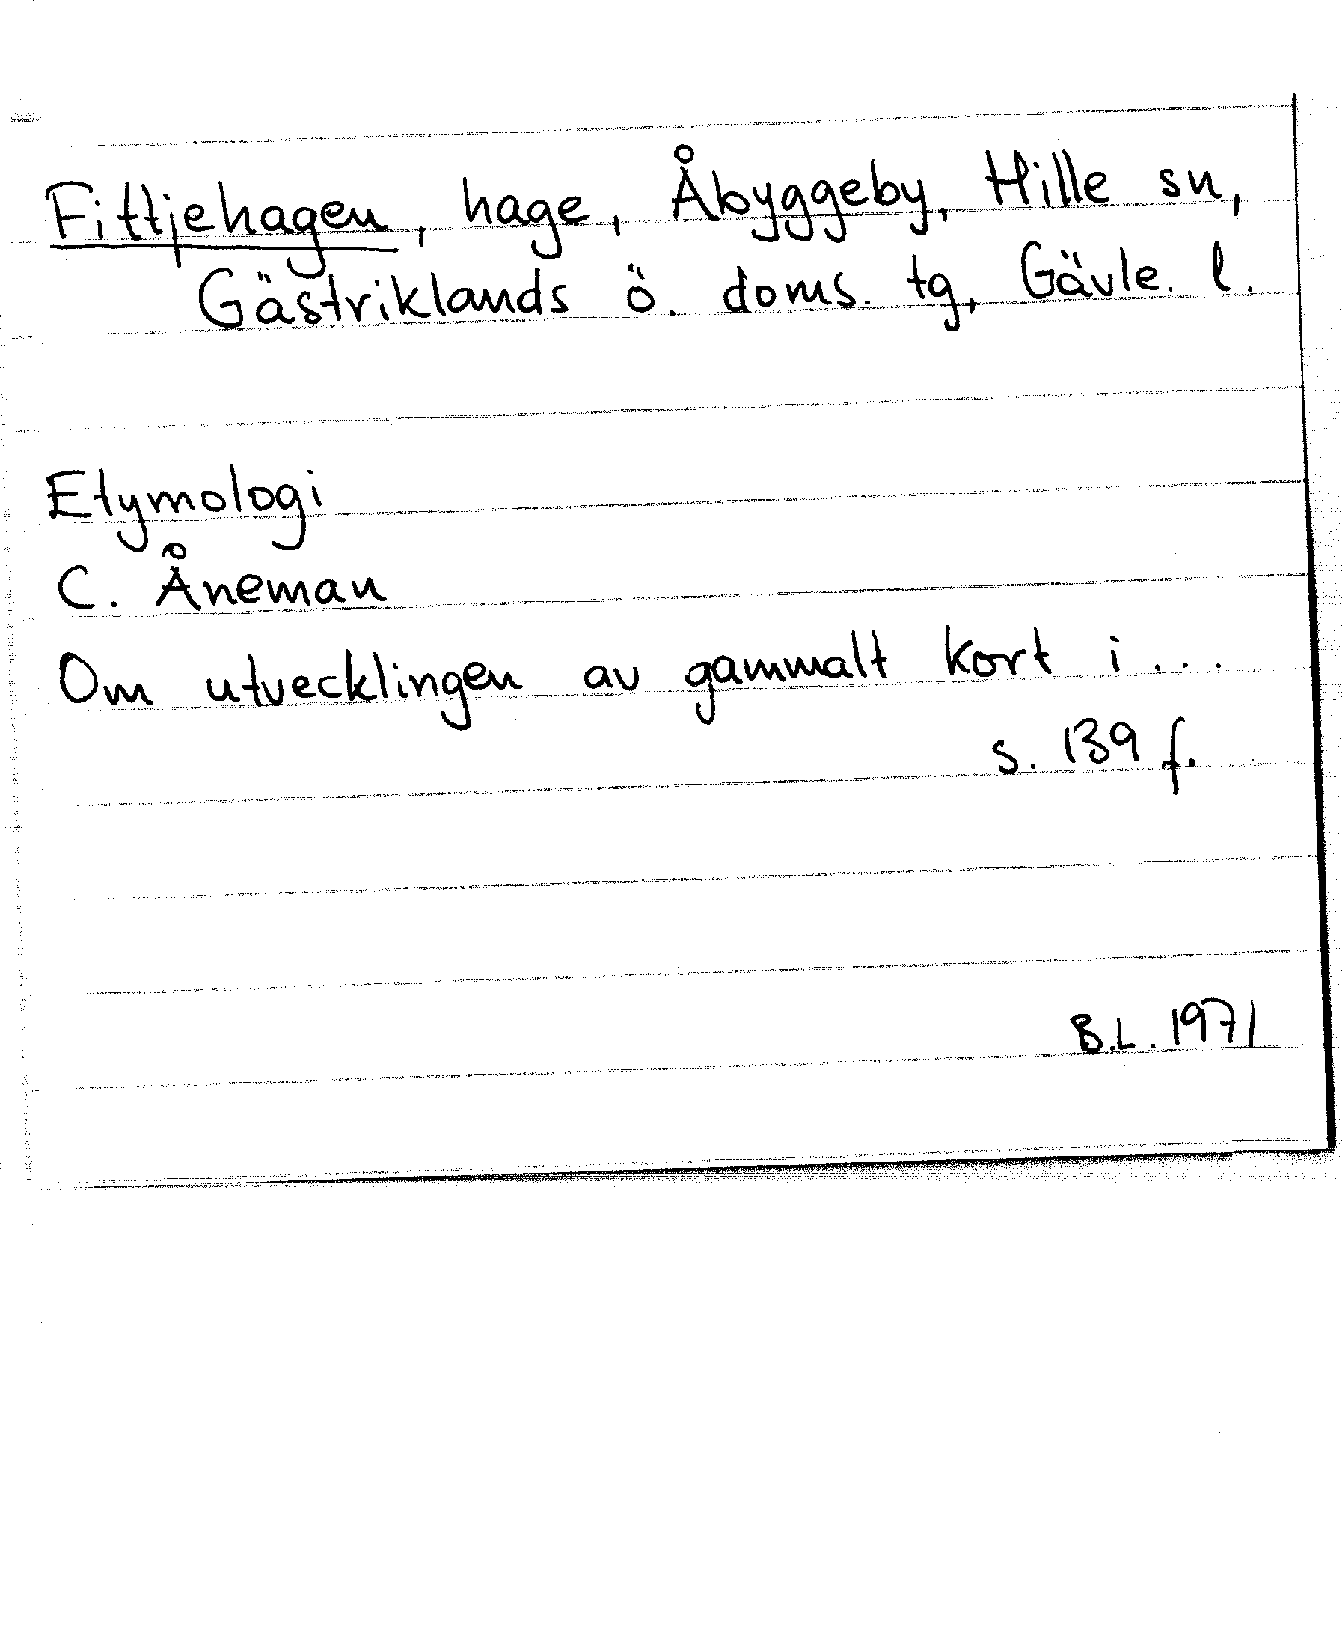 Fittjehagen, hage, Åbyggeby, Hille sn,
Gästriklands ö. doms. tg, Gävle. l.
Etymologi
C. Åneman
Om utvecklingen av gammalt kort i...
s. 139 f.
B.L. 1971